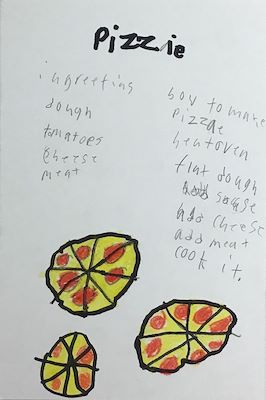 Pizzie
ingreeting
dough
tomatoes
cheese
meat
how to make
pizzae
heatoven
flat dough
add sause
add cheese
add meat
cook it.